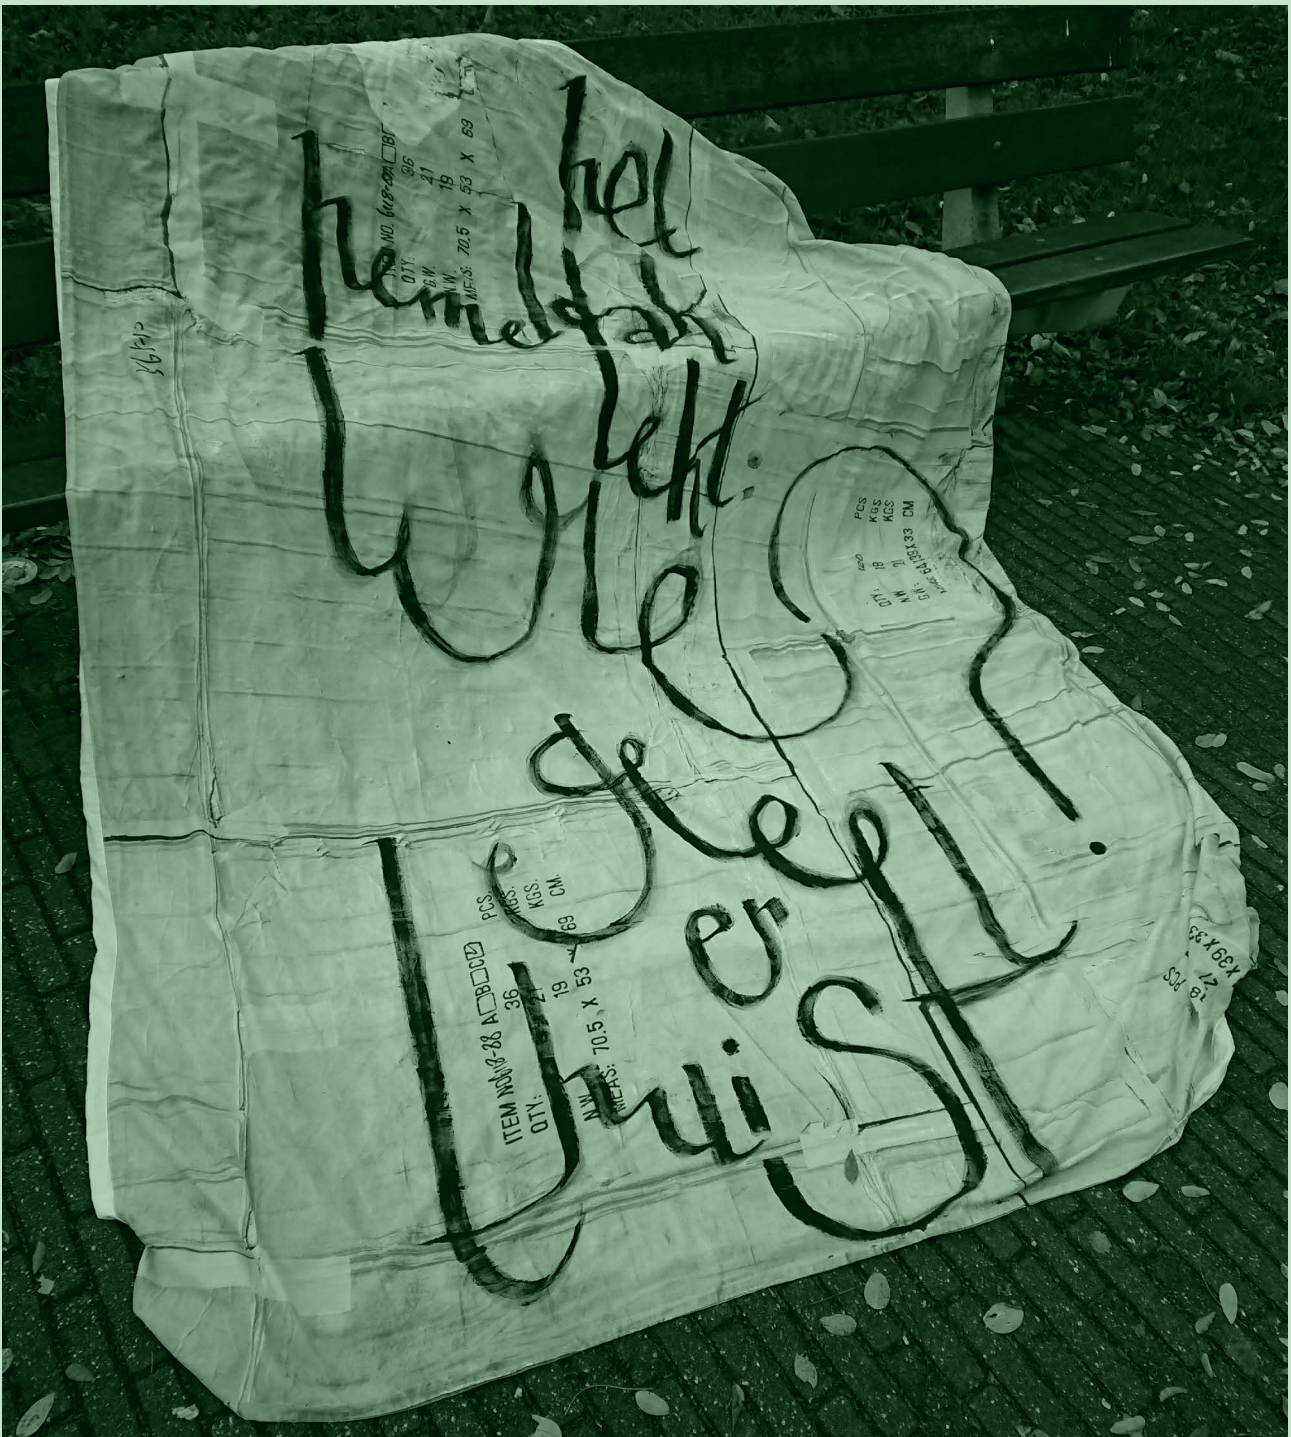 het
hemeldak
lekt.
Wie
geeft
er
thuis?
NO. 618-88A □B
QTY. 36
G.W. 21
N.W 19
MEAS: 70.5 X 53 X 69
QTY: PCS
N.W 18 KGS
G.W: 21 KGS
64X39X33 CM
ITEM NO 618-88 A□B□C☑
QTY: 36 PCS.
21 KGS.
N.W. 19 KGS.
MEAS: 70.5 X 53 X 69 CM.
18 PCS
21
X39X33